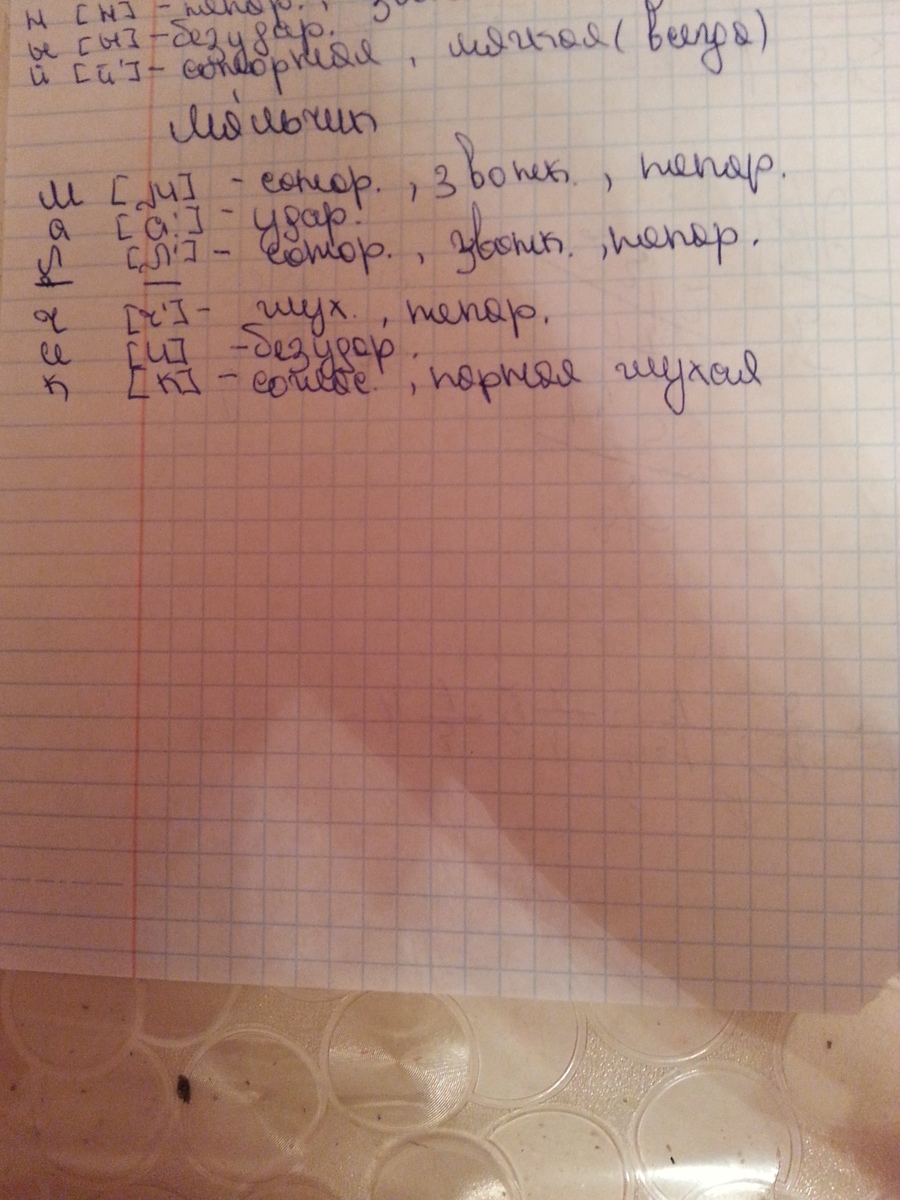 н [н] - непар., зв
ы [ы] - безудар.
й [й'] - сонорная, мягкая (всегда)
Ма́льчик
м [м] - сонор., звонк., непар.
а [а:] - удар.
л [л'] - сонор., звонк., непар.
ь —
ч [ч'] - глух., непар.
и [и] - безудар.
к [к] - соглас., парная глухая